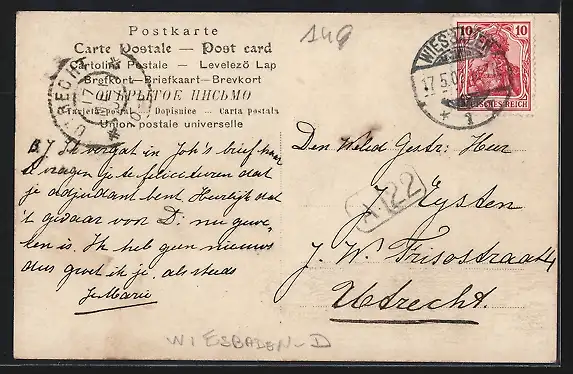 Postkarte
Carte Postale — Post card
Cartolina Postale — Levelező Lap
Brefkort—Briefkaart—Brevkort
ОТКРЫТОЕ ПИСЬМО
Dopisnice — Carta postala
Union postale universelle
149
WIESBADEN
17.5.0
* 1
10 10
DEUTSCHES REICH
B.J. Ik vergat in Joh's brief naar
te vragen je te feliciteeren dat
je adjudant bent. Heerlijk dat
't gevaar voor D. nu gewe-
ken is. Ik heb geen nieuws
dus groet ik je, als steeds
Je Marie
Den Weled. Gestr. Heer
J. Eysten
J. W. Frisostraat 4
Utrecht.
A.122
WIESBADEN-D